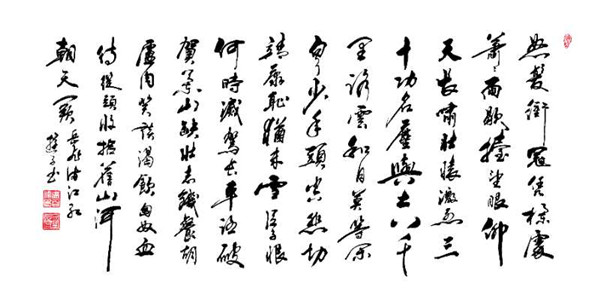 怒髮衝冠憑欄處
蕭蕭雨歇擡望眼仰
天長嘯壯懷激烈三
十功名塵與土八千
里路雲和月莫等閑
白了少年頭空悲切
靖康恥猶未雪臣子恨
何時滅駕長車踏破
賀蘭山缺壯志饑餐胡
虜肉笑談渴飲匈奴血
待從頭收拾舊山河
朝天闕 岳飛滿江紅